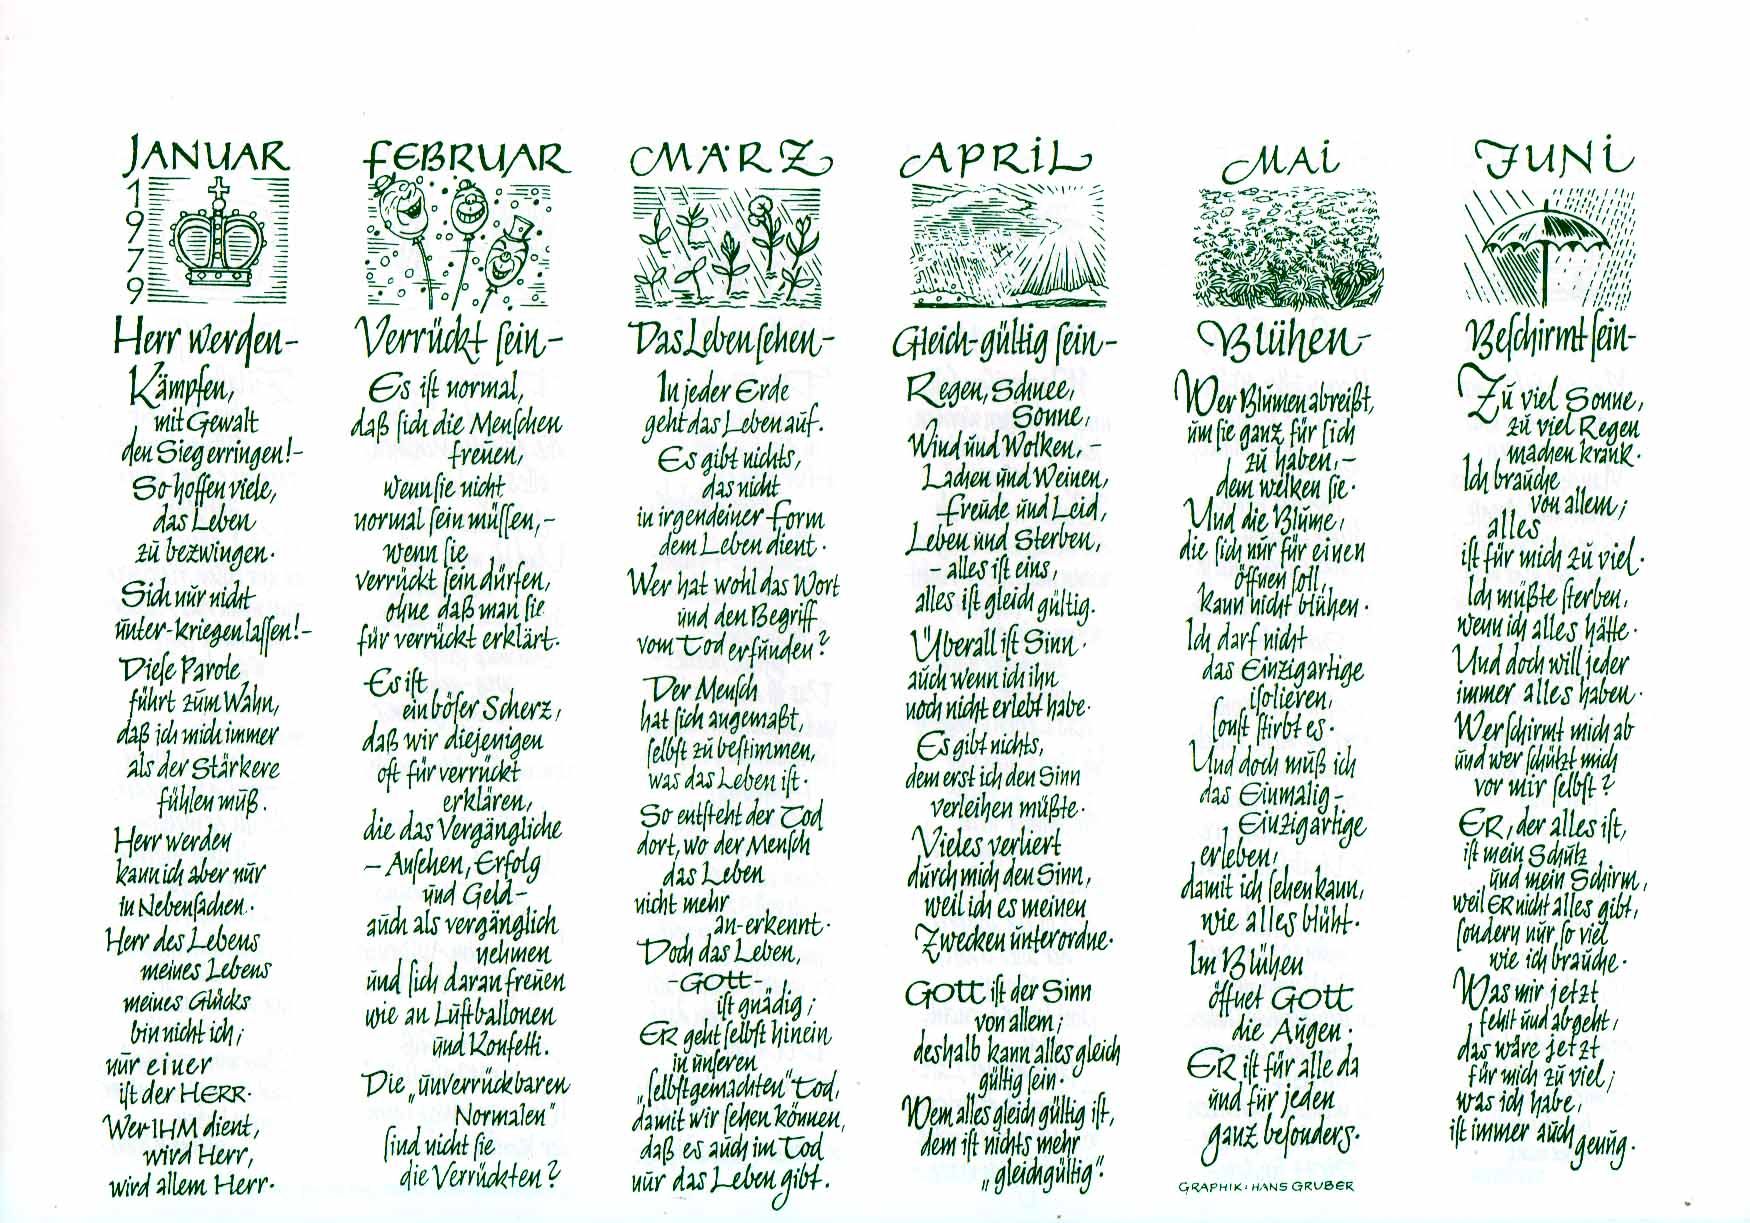 JANUAR
1979
Herr werden-
Kämpfen,
mit Gewalt
den Sieg erringen!-
So hoffen viele,
das Leben
zu bezwingen.
Sich nur nicht
unter-kriegen lassen!-
Diese Parole
führt zum Wahn,
daß ich mich immer
als der Stärkere
fühlen muß.
Herr werden
kann ich aber nur
in Nebensachen.
Herr des Lebens
meines Lebens
meines Glücks
bin nicht ich;
nur einer
ist der HERR.
Wer IHM dient,
wird Herr,
wird allem Herr.
FEBRUAR
Verrückt sein-
Es ist normal,
daß sich die Menschen
freuen,
wenn sie nicht
normal sein müssen,-
wenn sie
verrückt sein dürfen,
ohne daß man sie
für verrückt erklärt.
Es ist
ein böser Scherz,
daß wir diejenigen
oft für verrückt
erklären,
die das Vergängliche
- Ansehen, Erfolg
und Geld-
auch als vergänglich
nehmen
und sich daran freuen
wie an Luftballonen
und Konfetti.
Die „unverrückbaren
Normalen"
sind nicht sie
die Verrückten?
MÄRZ
Das Leben sehen-
In jeder Erde
geht das Leben auf.
Es gibt nichts,
das nicht
in irgendeiner Form
dem Leben dient.
Wer hat wohl das Wort
und den Begriff
vom Tod erfunden?
Der Mensch
hat sich angemaßt,
selbst zu bestimmen,
was das Leben ist.
So entsteht der Tod
dort, wo der Mensch
das Leben
nicht mehr
an-erkennt.
Doch das Leben,
-GOTT-
ist gnädig;
ER geht selbst hinein
in unseren
„selbstgemachten" Tod,
damit wir sehen können,
daß es auch im Tod
nur das Leben gibt.
APRIL
Gleich-gültig sein-
Regen, Schnee,
Sonne,
Wind und Wolken,-
Lachen und Weinen,
Freude und Leid,
Leben und Sterben,
- alles ist eins,
alles ist gleich gültig.
Überall ist Sinn.
auch wenn ich ihn
noch nicht erlebt habe.
Es gibt nichts,
dem erst ich den Sinn
verleihen müßte.
Vieles verliert
durch mich den Sinn,
weil ich es meinen
Zwecken unterordne.
GOTT ist der Sinn
von allem;
deshalb kann alles gleich
gültig sein.
Wem alles gleich gültig ist,
dem ist nichts mehr
„gleichgültig".
MAI
Blühen-
Wer Blumen abreißt,
um sie ganz für sich
zu haben,-
dem welken sie.
Und die Blume,
die sich nur für einen
öffnen soll,
kann nicht blühen.
Ich darf nicht
das Einzigartige
isolieren,
sonst stirbt es.
Und doch muß ich
das Einmalig-
Einzigartige
erleben,
damit ich sehen kann,
wie alles blüht.
Im Blühen
öffnet GOTT
die Augen.
ER ist für alle da
und für jeden
ganz besonders.
GRAPHIK: HANS GRUBER
JUNI
Beschirmt sein-
Zu viel Sonne,
zu viel Regen
machen krank.
Ich brauche
von allem;
alles
ist für mich zu viel.
Ich müßte sterben,
wenn ich alles hätte.
Und doch will jeder
immer alles haben.
Wer schirmt mich ab
und wer schützt mich
vor mir selbst?
ER, der alles ist,
ist mein Schutz
und mein Schirm,
weil ER nicht alles gibt,
sondern nur so viel
wie ich brauche.
Was mir jetzt
fehlt und abgeht,
das wäre jetzt
für mich zu viel;
was ich habe,
ist immer auch genug.